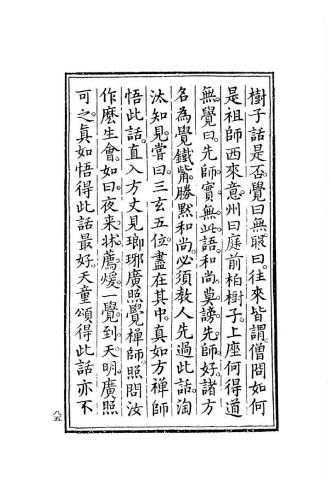 樹子話是否。覺曰。無。眼曰。往來皆謂。僧問如何
是祖師西來意。州曰。庭前柏樹子。上座何得道
無。覺曰。先師實無此語。和尚莫謗先師好。諸方
名為覺鐵觜。勝默和尚。必須教人先過此話。淘
汰知見。嘗曰。三玄五位。盡在其中。真如方禪師
悟此話。直入方丈。見瑯琊廣照覺禪師。照問汝
作麼生會。如曰。夜來床薦煖。一覺到天明。廣照
可之。真如悟得此話最好。天童頌得此話亦不
八五